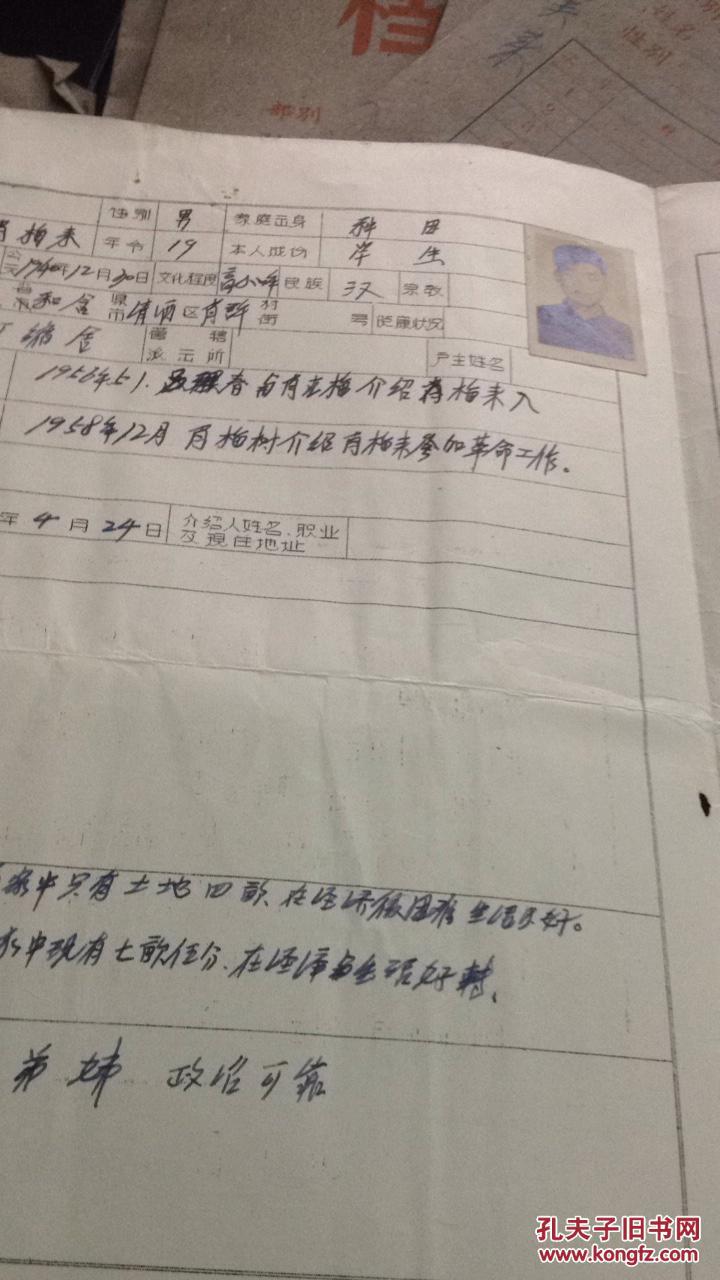 档
部别
姓名
性别
性别 男 家庭出身 科 田
肖柏来 年令 19 本人成份 学 生
公元1940年12月30日 文化程度 高小毕 民族 汉 宗教
省 和含 県市 清 区 肖 村街 号 健康状况
管辖派出所 户主姓名
1956年5.1. 春与肖 介绍肖柏来入
1958年12月 肖柏树介绍肖柏来参加革命工作。
年 4 月 24日 介绍人姓名、职业及现住地址
家中只有土地四亩、在经济很困难生活不好。
家中现有七亩伍分、在经济与生活好转、
弟 妹 政治可靠
孔夫子旧书网
www.kongfz.com